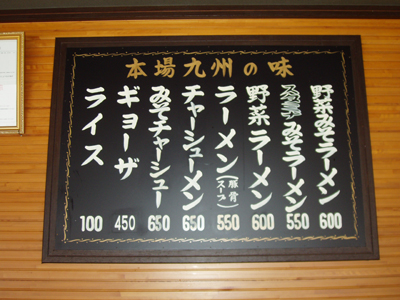 本場九州の味
野菜みそラーメン 600
みそラーメン 550
野菜ラーメン 600
ラーメン(豚骨スープ) 550
チャーシューメン 650
みそチャーシュー 650
ギョーザ 450
ライス 100